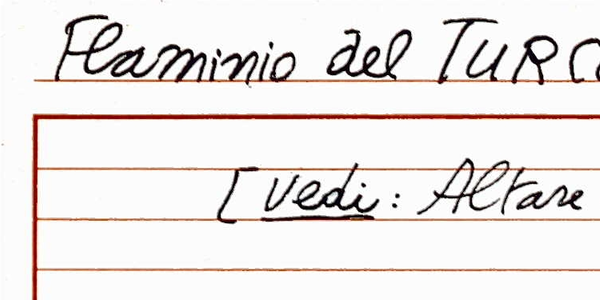 Flaminio del TURC
[ vedi: Altare